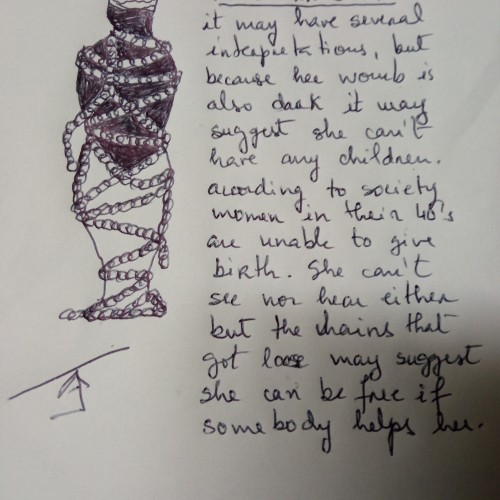 it may have several
interpretations, but
because hee womb is
also dark it may
suggest she can't
have any children.
according to society
women in their 40's
are unable to give
birth. She can't
see nor hear either
but the chains that
got loose may suggest
she can be free if
somebody helps her.